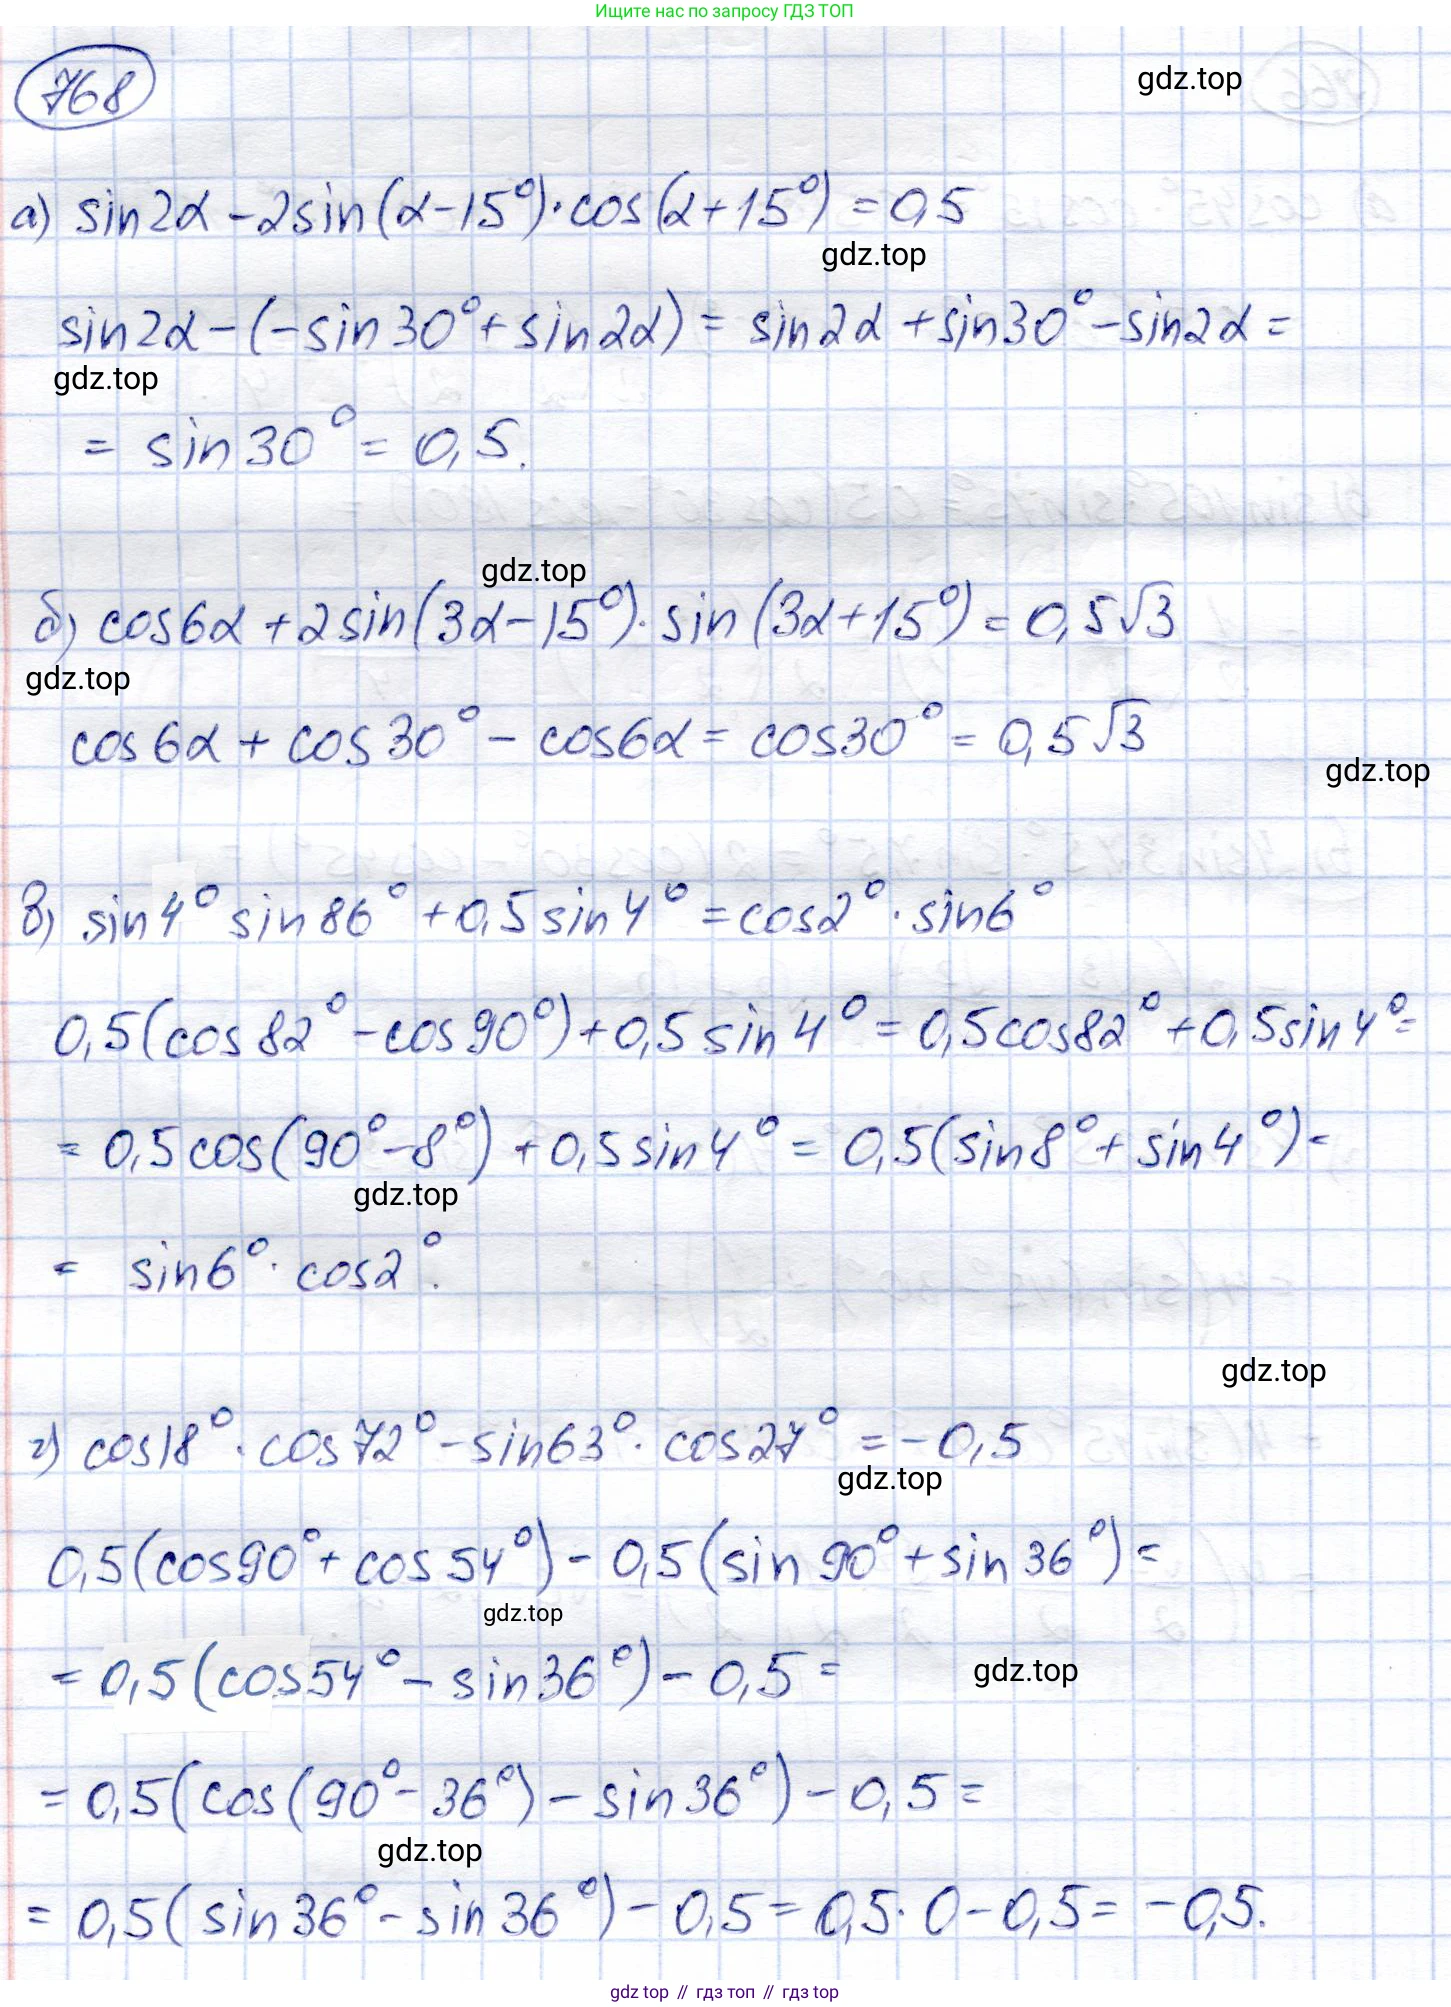 Ищите нас по запросу ГДЗ ТОП
768
gdz.top
а) sin2α - 2sin(α-15°)·cos(α+15°) = 0,5
gdz.top
sin2α - (-sin30° + sin2α) = sin2α + sin30° - sin2α =
gdz.top
= sin30° = 0,5.
gdz.top
б) cos6α + 2sin(3α-15°)·sin(3α+15°) = 0,5√3
gdz.top
cos6α + cos30° - cos6α = cos30° = 0,5√3
gdz.top
в) sin4° sin86° + 0,5sin4° = cos2°·sin6°
0,5(cos82° - cos90°) + 0,5sin4° = 0,5cos82° + 0,5sin4° =
= 0,5cos(90°-8°) + 0,5sin4° = 0,5(sin8° + sin4°) =
gdz.top
= sin6°·cos2°.
gdz.top
г) cos18°·cos72° - sin63°·cos27° = -0,5
gdz.top
0,5(cos90° + cos54°) - 0,5(sin90° + sin36°) =
gdz.top
= 0,5(cos54° - sin36°) - 0,5 =
gdz.top
= 0,5(cos(90°-36°) - sin36°) - 0,5 =
gdz.top
= 0,5(sin36° - sin36°) - 0,5 = 0,5·0 - 0,5 = -0,5.
gdz top // гдз топ // гдз top